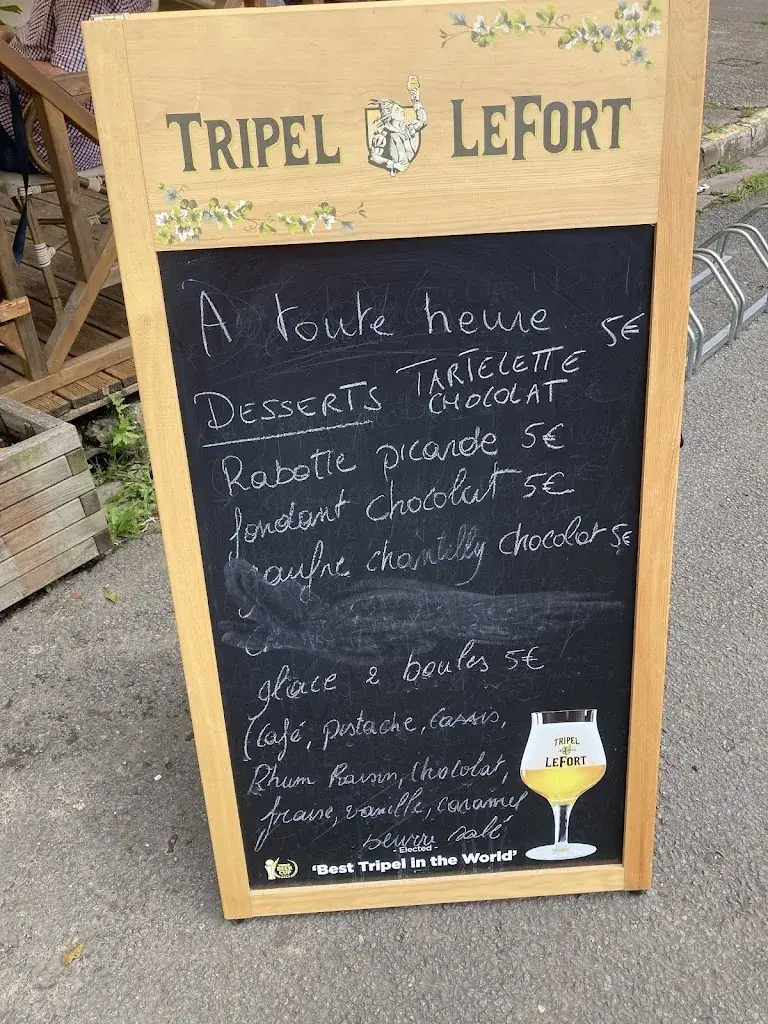 TRIPEL LEFORT
A toute heure
5€
DESSERTS TARTELETTE
CHOCOLAT
Rabotte picarde 5€
fondant chocolat 5€
gaufre chantilly chocolat 5€
glace 2 boules 5€
(café, pistache, cassis,
Rhum Raisin, chocolat,
fraise, vanille, caramel
beurre salé
TRIPEL
LEFORT
- Elected -
'Best Tripel in the World'